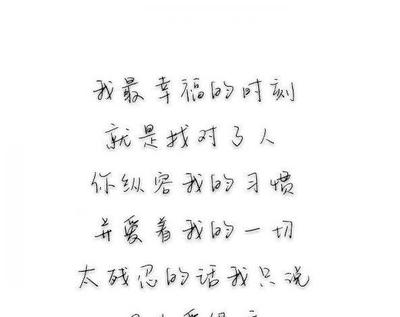 我最幸福的时刻
就是找对了人
你纵容我的习惯
并爱着我的一切
太残忍的话我只说